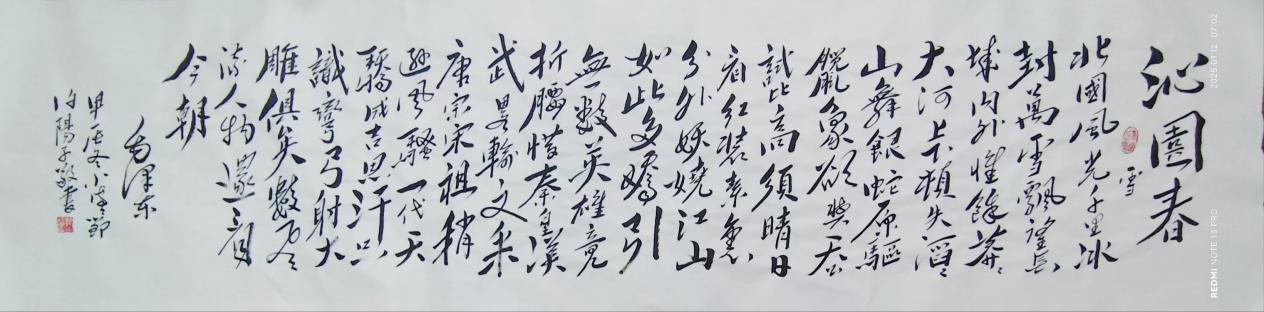 沁園春
雪
北國風光千里冰
封萬雪飄望長
城内外惟餘莽々
大河上下頓失滔々
山舞銀蛇原驅
蠟象欲與天公
試比高須晴日
看紅裝素裹
分外妖嬈江山
如此多嬌引
無數英雄竟
折腰惜秦皇漢
武畧輸文采
唐宗宋祖稍
遜風騷一代天
驕成吉思汗只
識彎弓射大
雕俱矣數風
流人物還看
今朝
毛澤東
甲辰冬小寒節
陽子敬書
REDMI NOTE 13 PRO
2025.01.12 07:02